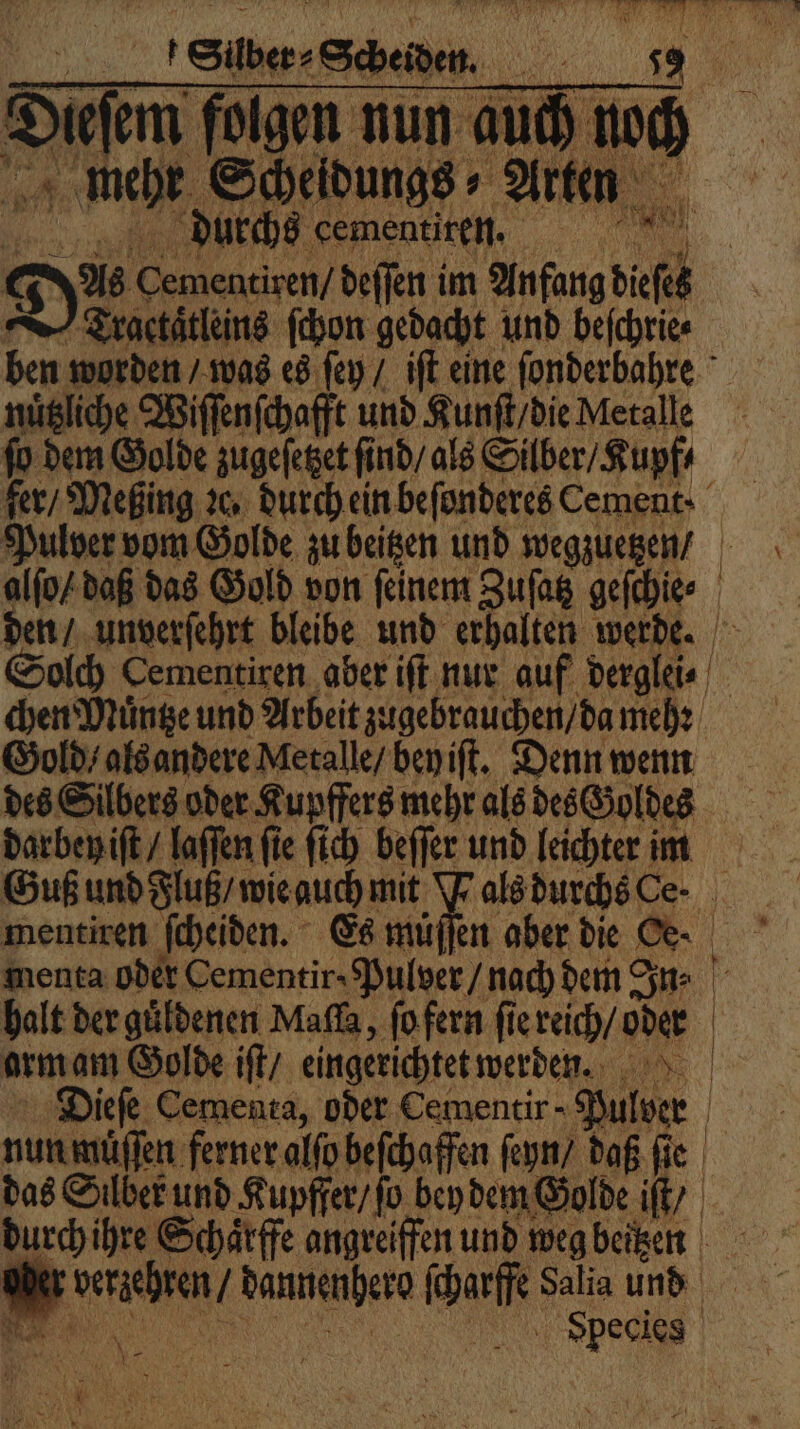 Silber⸗Scheiden. 59
Dieſem folgen nun auch noch
mehr Scheidungs⸗Arten
durchs cementiren.
DAs Cementiren/ deſſen im Anfang dieſes
Tractaͤtleins ſchon gedacht und beſchrie⸗
ben worden / was es ſey / iſt eine ſonderbahre
nuͤtzliche Wiſſenſchafft und Kunſt/die Metalle
ſo dem Golde zugeſetzet ſind/ als Silber/Kupf⸗
fer/ Meßing ꝛc. durch ein beſonderes Cement-
Pulver vom Golde zu beitzen und wegzuetzen/
alſo/ daß das Gold von ſeinem Zuſatz geſchie⸗
den / unverſehrt bleibe und erhalten werde.
Solch Cementiren aber iſt nur auf derglei⸗
chen Muͤntze und Arbeit zugebrauchen/da mehꝛ
Gold/ als andere Metalle/ bey iſt. Denn wenn
des Silbers oder Kupffers mehr als des Goldes
darbey iſt / laſſen ſie ſich beſſer und leichter im
Guß und Fluß/ wie auch mit 🜅 als durchs Ce-
mentiren ſcheiden. Es muͤſſen aber die Ce-
menta oder Cementir-Pulver / nach dem In⸗
halt der guͤldenen Maſſa, ſo fern ſie reich/ oder
arm am Golde iſt/ eingerichtet werden.
Dieſe Cementa, oder Cementir-Pulver
nun muͤſſen ferner alſo beſchaffen ſeyn/ daß ſie
das Silber und Kupffer/ ſo bey dem Golde iſt/
durch ihre Schaͤrffe angreiffen und weg beitzen
oder verzehren / dannenhero ſcharffe Salia und
Species